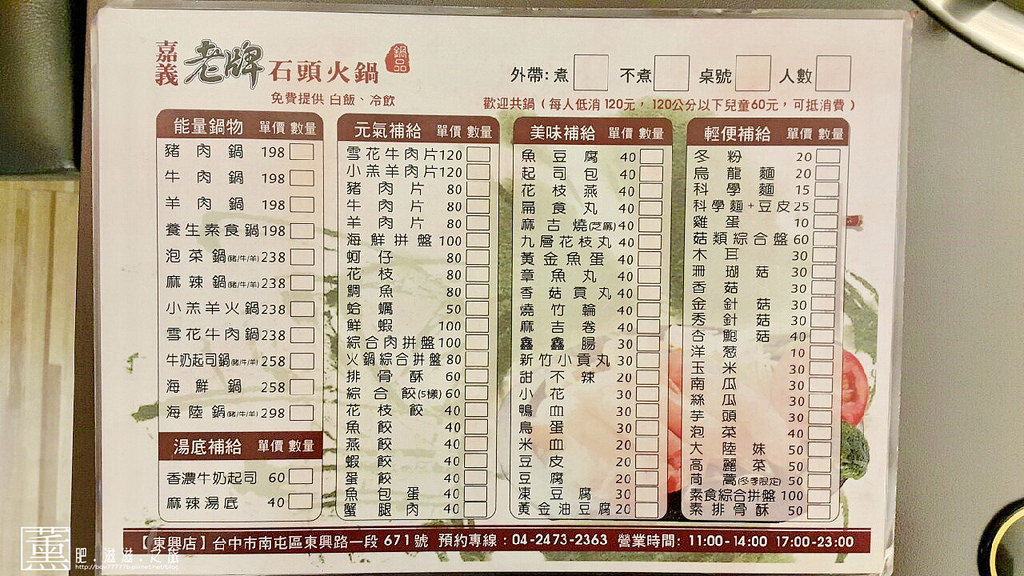 嘉義老牌石頭火鍋 鍋品
外帶: 煮 不煮 桌號 人數
免費提供 白飯、冷飲
歡迎共鍋 ( 每人低消 120元， 120公分以下兒童60元，可抵消費 )
能量鍋物 單價 數量
豬肉鍋 198
牛肉鍋 198
羊肉鍋 198
養生素食鍋 198
泡菜鍋(豬/牛/羊) 238
麻辣鍋(豬/牛/羊) 238
小羔羊火鍋 238
雪花牛肉鍋 238
牛奶起司鍋(豬/牛/羊) 258
海鮮鍋 258
海陸鍋(豬/牛/羊) 298
湯底補給 單價 數量
香濃牛奶起司 60
麻辣湯底 40
元氣補給 單價 數量
雪花牛肉片 120
小羔羊肉片 120
豬肉片 80
牛肉片 80
羊肉片 80
海鮮拼盤 100
蚵仔 80
花枝 80
鯛魚 80
蛤蠣 50
鮮蝦 100
綜合肉拼盤 100
火鍋綜合拼盤 80
排骨酥 60
綜合餃(5樣) 60
花枝餃 40
魚餃 40
燕餃 40
蝦餃 40
蛋餃 40
魚包蛋 40
蟹腿肉 40
美味補給 單價 數量
魚豆腐 40
起司包 40
花枝燕 40
扁食丸 40
麻吉燒(芝麻) 40
九層花枝丸 40
黃金魚蛋 40
章魚丸 40
香菇貢丸 40
燒竹輪 40
麻吉卷 40
鑫鑫腸 30
新竹小貢丸 30
甜不辣 20
小花 30
鴨血 30
鳥蛋 30
米血 20
豆皮 20
豆腐 20
凍豆腐 30
黃金油豆腐 20
輕便補給 單價 數量
冬粉 20
烏龍麵 20
科學麵 15
科學麵+豆皮 25
雞蛋 10
菇類綜合盤 60
木耳 30
珊瑚菇 30
香菇 30
金針菇 30
秀針菇 30
杏鮑菇 40
洋蔥 10
玉米 30
南瓜 30
絲瓜 30
芋頭 30
泡菜 40
大陸妹 50
高麗菜 50
茼蒿(冬季限定) 50
素食綜合拼盤 100
素排骨酥 50
【東興店】台中市南屯區東興路一段 671號 預約專線 : 04-2473-2363 營業時間: 11:00-14:00 17:00-23:00
薰 肥.滋滋.之旅